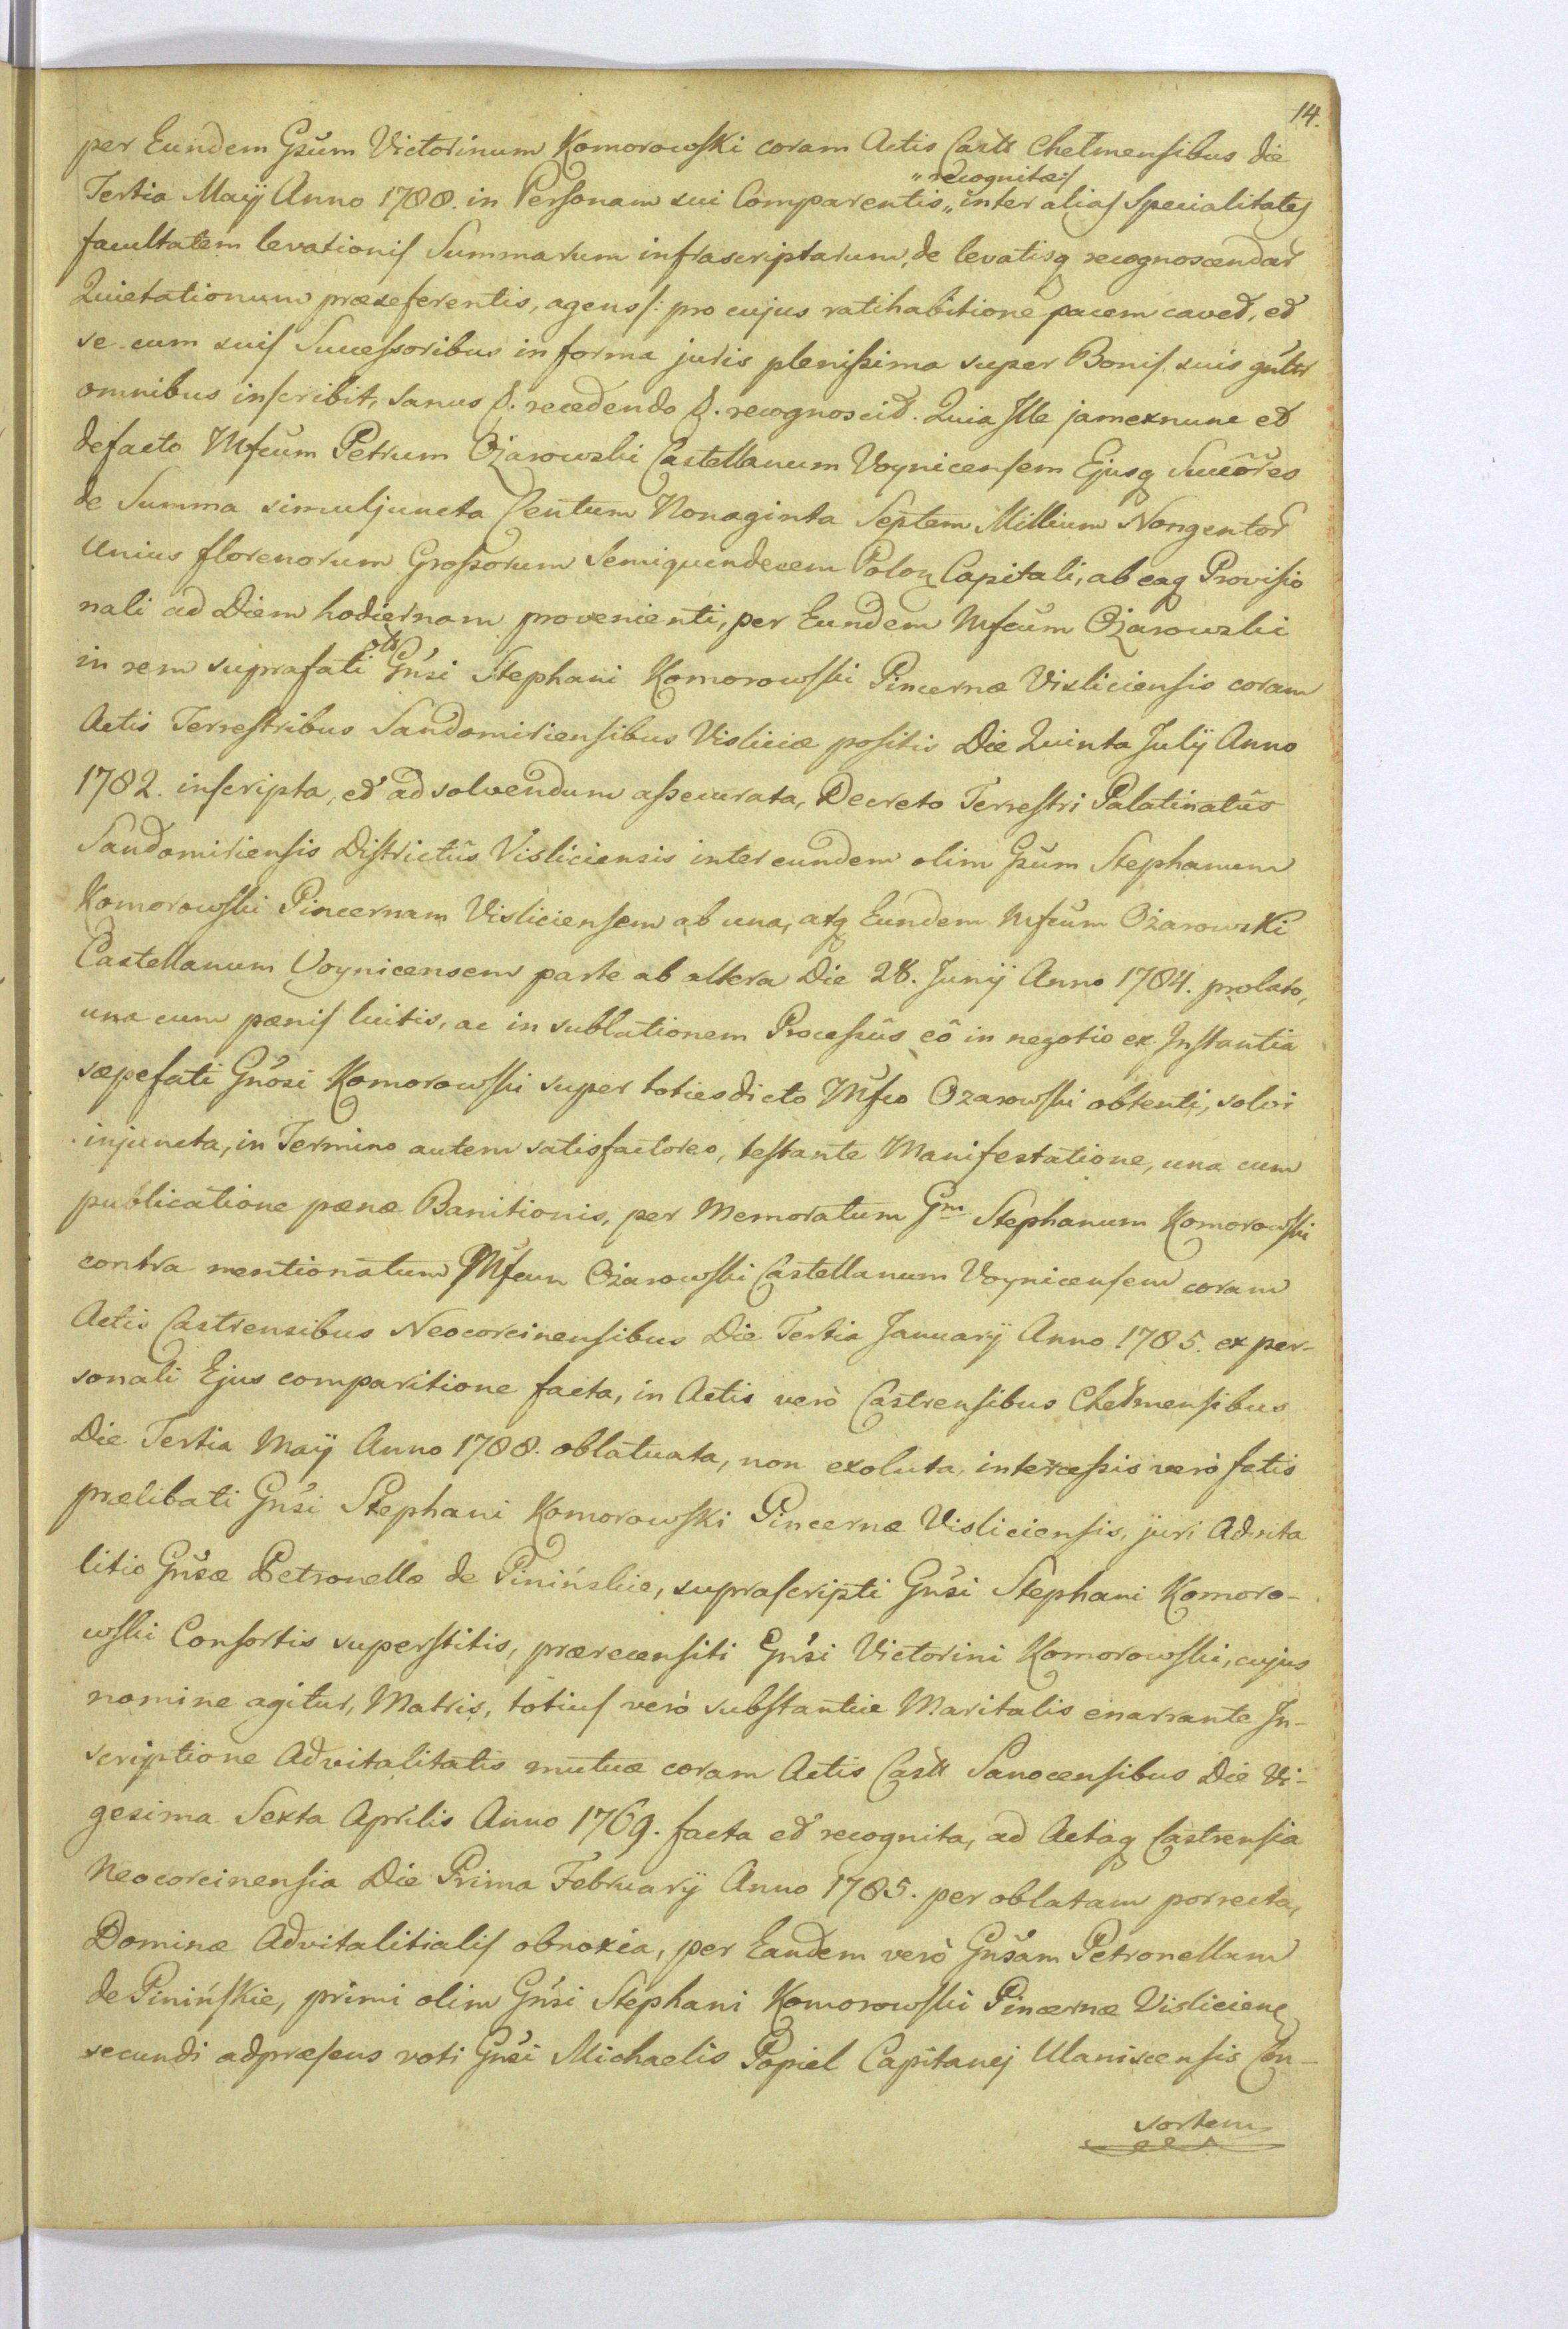 14.
per Eundem Gsum Victorinum Komorowski coram Actis Castr Chelmensibus die
„recognitæ
Tertia Maÿ Anno 1788. in Personam sui Comparentis„ inter alias Specialitates
facultatem levationis Summarum infrascriptarum, de levatisq recognoscendar
Quietationum præseferentis, agens /: pro cujus ratihabitione pacem caved, ed
se cum suis Successoribus in forma juris plenissima super Bonis suis gnlr
omnibus inscribit, sanus &. recedendo &. recognoscid. Quia Ille jamexnunc ed
defacto Mfcum Petrum Ożarowski Castellanum Voynicensem Ejusq Succõres
de Summa simuljuncta Centum Nonaginta Septem Millium Nongentor
Unius florenorum Grossorum Semiquindecem Polon Capitali, ab eaq Provisio
nali ad Diem hodiernam provenienti, per Eundem Mfcum Ożarowski
in rem suprafati olim Gnsi Stephani Komorowski Pincernæ Visliciensis coram
Actis Terrestribus Sandomiriensibus Visliciæ positis Die Quinta Julÿ Anno
1782. inscripta, ed ad solvendum assecurata, Decreto Terrestri Palatinatûs
Sandomiriensis Districtûs Visliciensis inter eundem olim Gsum Stephanum
Komorowski Pincernam Visliciensem ab una, atq Eundem Mfcum Ożarowski
Castellanum Voynicensem parte ab altera Die 28. Junÿ Anno 1784. prolato,
una cum pænis luitis, ac in sublationem Processûs eô in negotio ex Instantia
sæpefati Gnosi Komorowski super totiesdicto Mfco Ozarowski obtenti, solvi
injuncta, in Termino autem satisfactoreo, testante Manifestatione, una cum
publicatione pænæ Banitionis, per Memoratum Gm Stephanum Komorowski
contra mentionatum Mfcum Ożarowski Castellanum Voynicensem coram
Actis Castrensibus Neocorcinensibus Die Tertia Januarÿ Anno 1785. ex per-
sonali Ejus comparitione facta, in Actis verò Castrensibus Chelmensibus
Die Tertia Maÿ Anno 1788. oblatuata, non exoluta, intercessis verò fatis
prælibati Gnsi Stephani Komorowski Pincernæ Visliciensis, juri Advita
litio Gnsæ Petronellæ de Pinińskie, suprascripti Gnsi Stephani Komoro-
wski Consortis superstitis, prærecensiti Gnsi Victorini Komorowski, cujus
nomine agitur, Matris, totius verò substantiæ Maritalis enarrante In-
scriptione Advitalitatis mutuæ coram Actis Castr Sanocensibus Die Vi-
gesima Sexta Aprilis Anno 1769. facta ed recognita, ad Actaq Castrensia
Neocorcinensia Die Prima Februarÿ Anno 1785. per oblatam porrecta,
Dominæ Advitalitialis obnoxia, per Eandem verò Gnsam Petronellam
de Pinińskie, primi olim Gnsi Stephani Komorowski Pincernæ Visliciens
secundi adpræsens voti Gnsi Michaelis Popiel Capitanej Ulaniscensis Con-
sortem